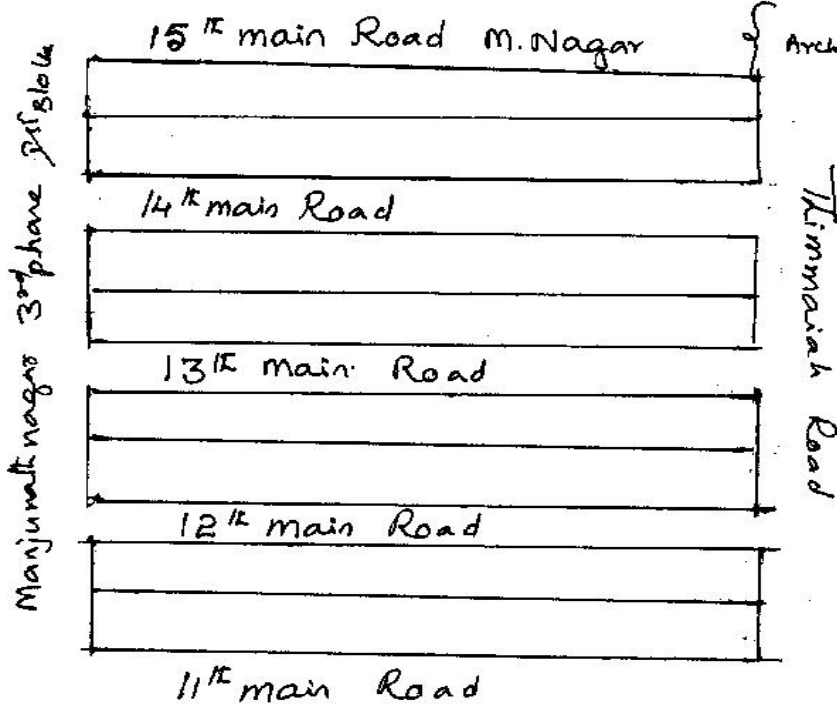 15th main Road M.Nagar
Arch
14th main Road
13th main Road
12th main Road
11th main Road
Manjunathnagar 3rd phase Block
Thimmaiah Road